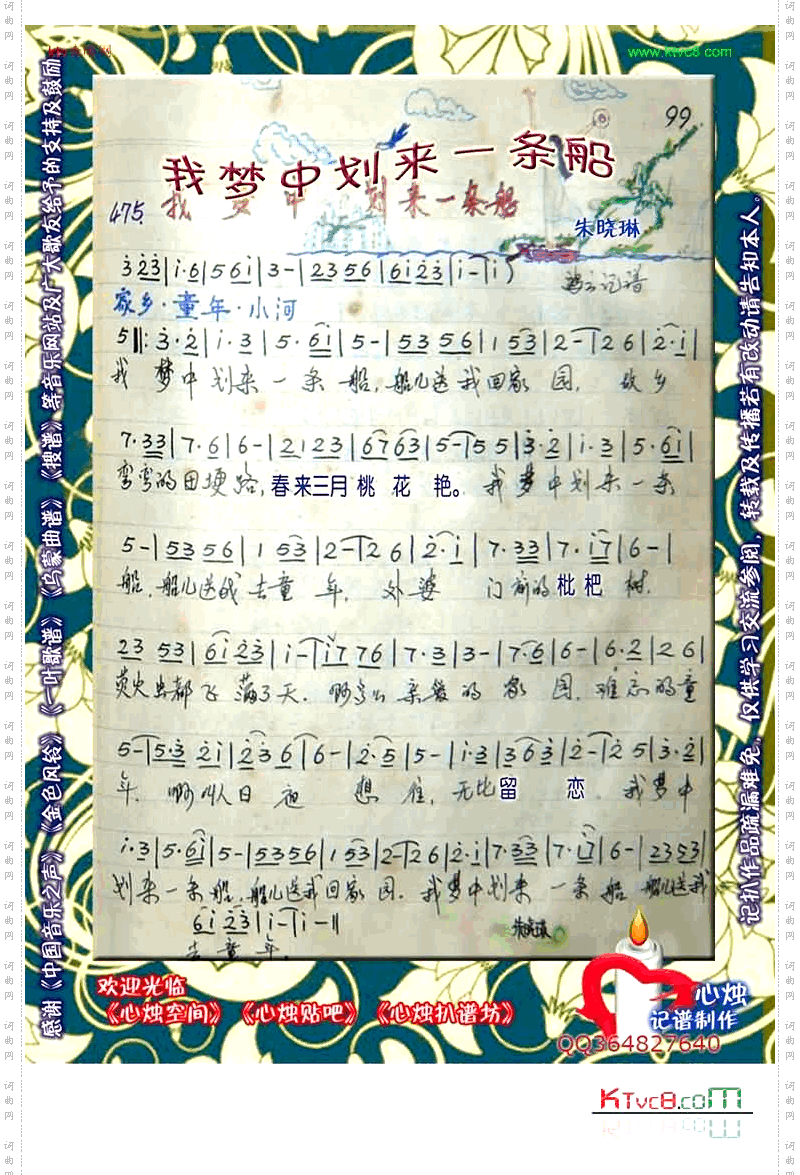 www.ktvc8.com
99
我梦中划来一条船
475. 我梦中划来一条船
朱晓琳
3 23|i·6|56i|3-|2356|6i23|i-|i)
记谱
家乡·童年·小河
5‖:3·2|i·3|5·6i|5-|5356|1 53|2-|2 6|2·i|
我 梦中 划来 一条 船,船儿送我回家 园, 故乡
7·33|7·6|6-|2123|6763|5-|5 5|3·2|i·3|5·6i|
弯弯的田埂路,春来三月桃花艳。我梦中划来一条
5-|5356|1 53|2-|2 6|2·i|7·33|7·i7|6-|
船,船儿送我去童年,外婆门前的枇杷树,
23 53|6i 23|i-|i776|7·3|3-|7·6|6-|6·2|26|
萤火虫都飞满了天。啊 亲爱的家园,难忘的童
5-|5·3 2i|236|6-|2·5|5-|i·3|363|2-|2 5|3·2|
年,啊 叫人日夜想往,无比留恋 我梦中
i·3|5·6i|5-|5356|1 53|2-|2 6|2·i|7·33|7·i7|6-|2353|
划来一条船,船儿送我回家园。我梦中划来一条船 船儿送我
6i 23|i-|i-‖
去童年。
朱晓琳
感谢《中国音乐之声》《金色风铃》《一叶歌谱》《乌蒙曲谱》《搜谱》等音乐网站及广大歌友给予的支持及鼓励
记扒作品疏漏难免,仅供学习交流参阅,转载及传播若有改动请告知本人。
欢迎光临
《心烛空间》《心烛贴吧》《心烛扒谱坊》
心烛
记谱制作
QQ364827640
KTvc8.com
词曲网